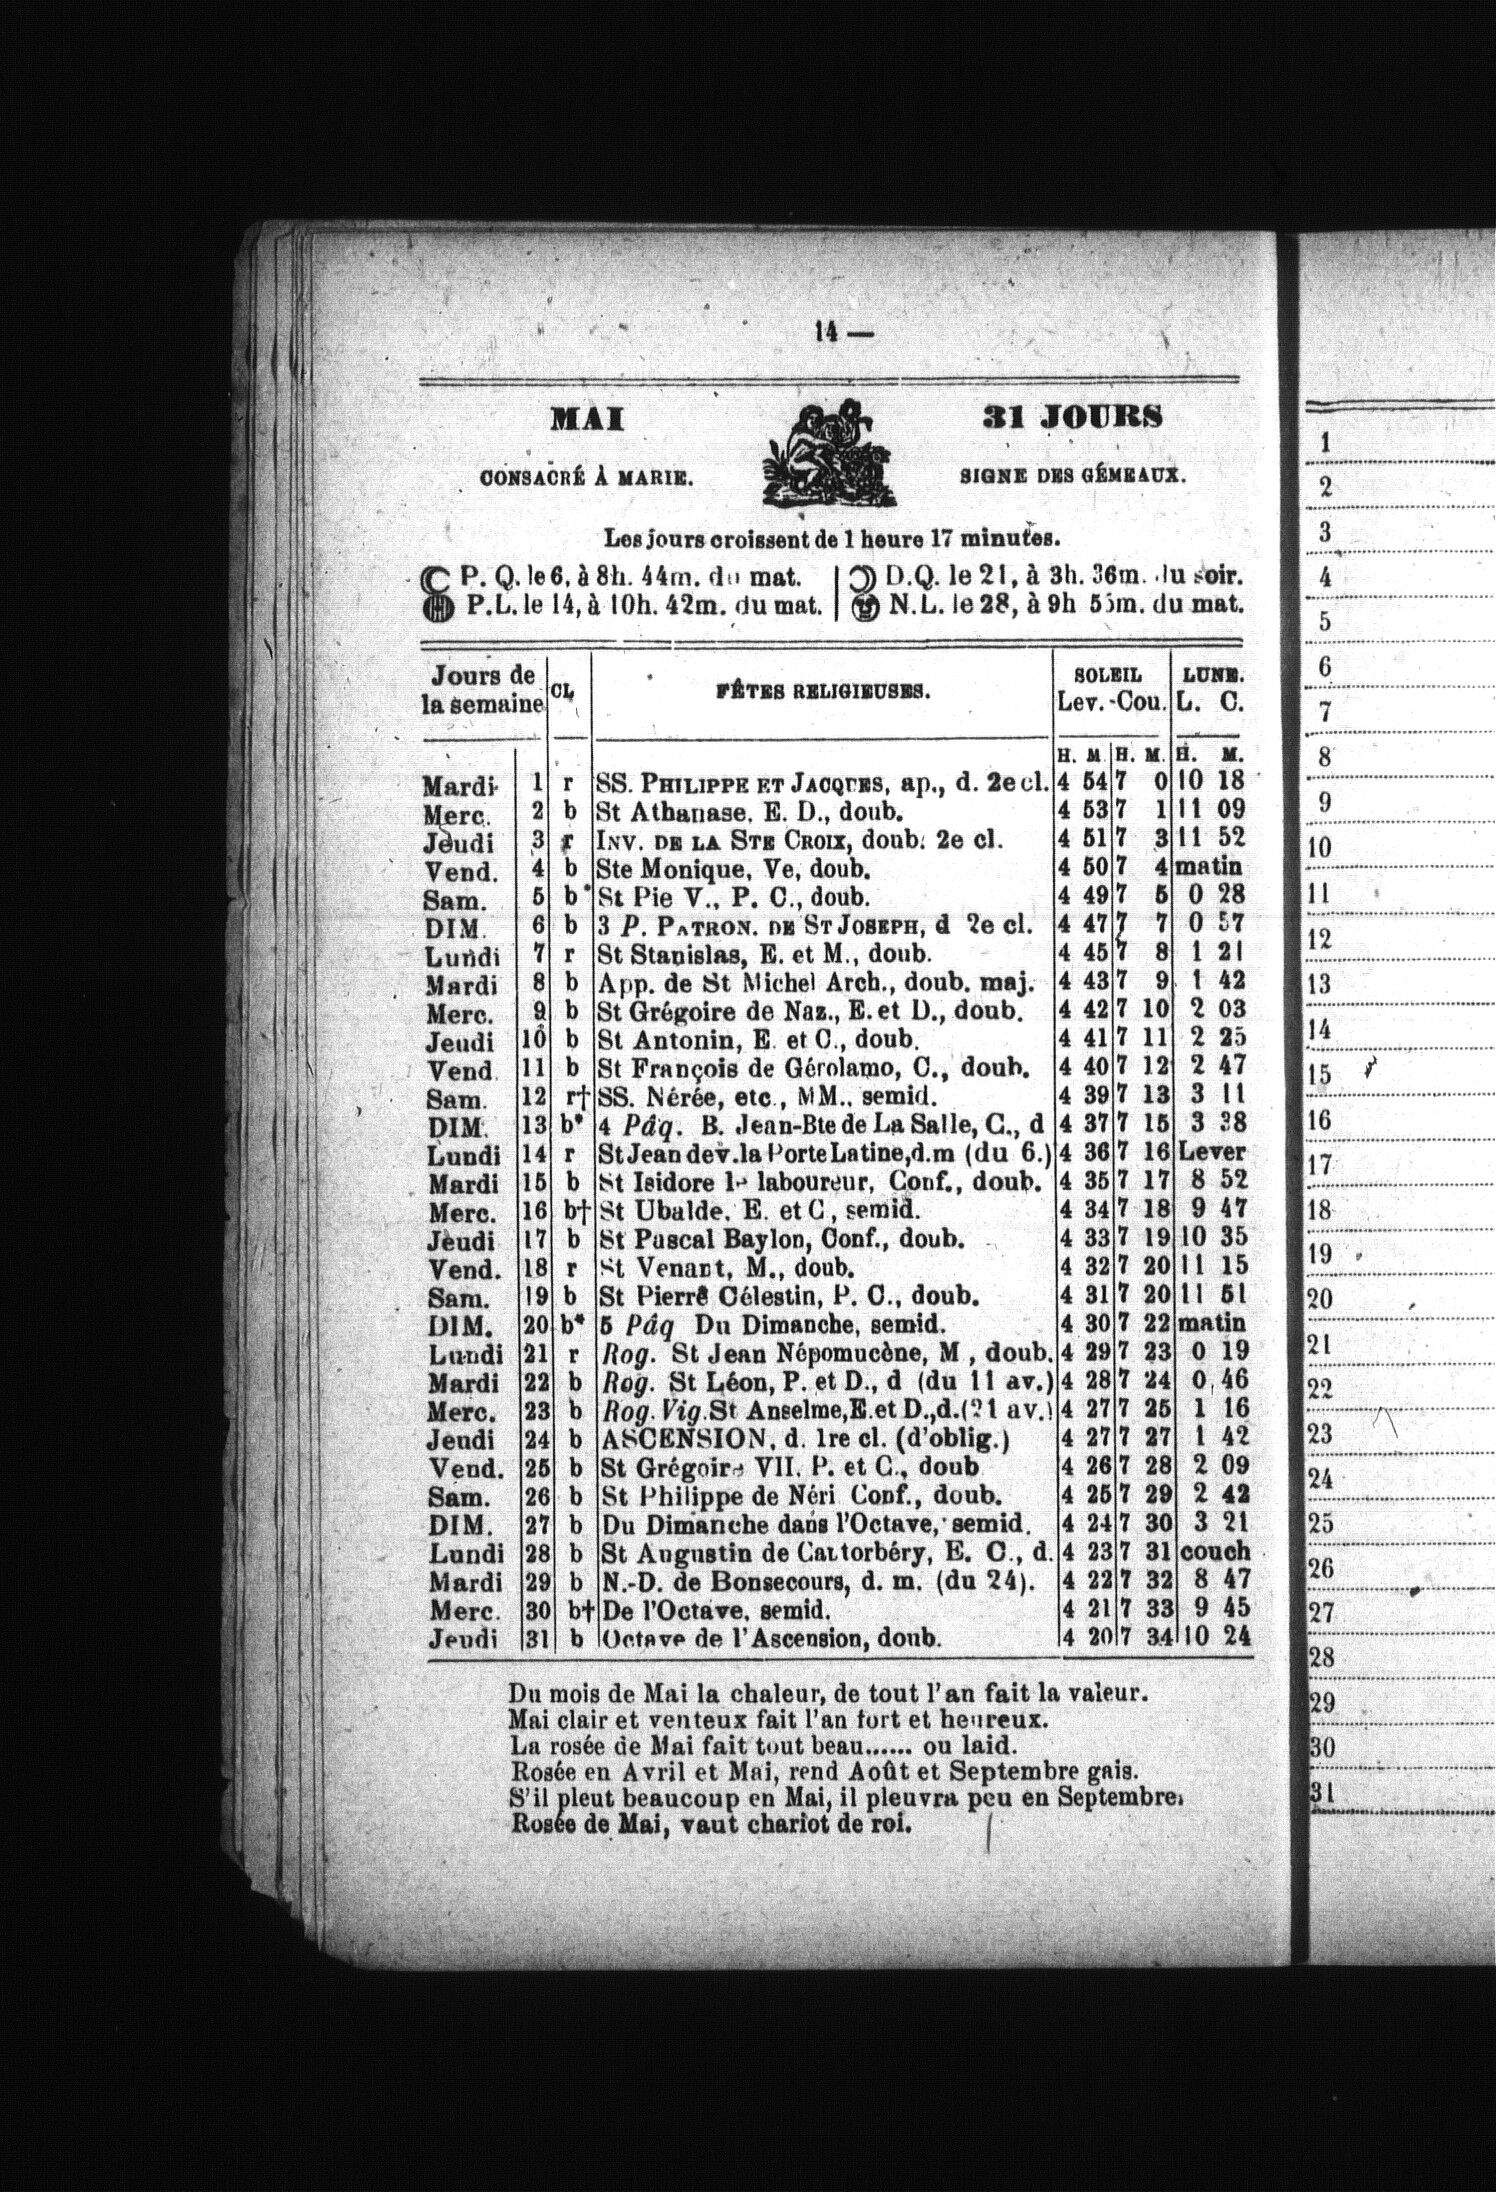 14 —
MAI
31 JOURS
CONSACRÉ À MARIE.
SIGNE DES GÉMEAUX.
Les jours croissent de 1 heure 17 minutes.
P. Q. le 6, à 8h. 44m. du mat. | D.Q. le 21, à 3h. 36m. du soir.
P.L. le 14, à 10h. 42m. du mat. | N.L. le 28, à 9h 55m. du mat.
Jours de la semaine | CL | FÊTES RELIGIEUSES. | SOLEIL Lev.-Cou. | LUNE. L. C.
H. M H. M. H. M.
Mardi 1 r SS. PHILIPPE ET JACQUES, ap., d. 2e cl. 4 54 7 0 10 18
Merc. 2 b St Athanase. E. D., doub. 4 53 7 1 11 09
Jeudi 3 r INV. DE LA STE CROIX, doub. 2e cl. 4 51 7 3 11 52
Vend. 4 b Ste Monique, Ve, doub. 4 50 7 4 matin
Sam. 5 b* St Pie V., P. C., doub. 4 49 7 5 0 28
DIM. 6 b 3 P. PATRON. DE ST JOSEPH, d 2e cl. 4 47 7 7 0 57
Lundi 7 r St Stanislas, E. et M., doub. 4 45 7 8 1 21
Mardi 8 b App. de St Michel Arch., doub. maj. 4 43 7 9 1 42
Merc. 9 b St Grégoire de Naz., E. et D., doub. 4 42 7 10 2 03
Jeudi 10 b St Antonin, E. et C., doub. 4 41 7 11 2 25
Vend. 11 b St François de Gérolamo, C., doub. 4 40 7 12 2 47
Sam. 12 r† SS. Nérée, etc., MM., semid. 4 39 7 13 3 11
DIM. 13 b* 4 Pâq. B. Jean-Bte de La Salle, C., d 4 37 7 15 3 38
Lundi 14 r St Jean dev. la Porte Latine, d.m (du 6.) 4 36 7 16 Lever
Mardi 15 b St Isidore le laboureur, Conf., doub. 4 35 7 17 8 52
Merc. 16 b† St Ubalde. E. et C, semid. 4 34 7 18 9 47
Jeudi 17 b St Pascal Baylon, Conf., doub. 4 33 7 19 10 35
Vend. 18 r St Venant, M., doub. 4 32 7 20 11 15
Sam. 19 b St Pierre Célestin, P. C., doub. 4 31 7 20 11 51
DIM. 20 b* 5 Pâq Du Dimanche, semid. 4 30 7 22 matin
Lundi 21 r Rog. St Jean Népomucène, M, doub. 4 29 7 23 0 19
Mardi 22 b Rog. St Léon, P. et D., d (du 11 av.) 4 28 7 24 0 46
Merc. 23 b Rog. Vig. St Anselme, E. et D., d. (21 av.) 4 27 7 25 1 16
Jeudi 24 b ASCENSION, d. 1re cl. (d'oblig.) 4 27 7 27 1 42
Vend. 25 b St Grégoire VII. P. et C., doub 4 26 7 28 2 09
Sam. 26 b St Philippe de Néri Conf., doub. 4 25 7 29 2 42
DIM. 27 b Du Dimanche dans l'Octave, semid. 4 24 7 30 3 21
Lundi 28 b St Augustin de Cantorbéry, E. C., d. 4 23 7 31 couch
Mardi 29 b N.-D. de Bonsecours, d. m. (du 24). 4 22 7 32 8 47
Merc. 30 b† De l'Octave, semid. 4 21 7 33 9 45
Jeudi 31 b Octave de l'Ascension, doub. 4 20 7 34 10 24
Du mois de Mai la chaleur, de tout l'an fait la valeur.
Mai clair et venteux fait l'an fort et heureux.
La rosée de Mai fait tout beau...... ou laid.
Rosée en Avril et Mai, rend Août et Septembre gais.
S'il pleut beaucoup en Mai, il pleuvra peu en Septembre.
Rosée de Mai, vaut chariot de roi.
1
2
3
4
5
6
7
8
9
10
11
12
13
14
15
16
17
18
19
20
21
22
23
24
25
26
27
28
29
30
31